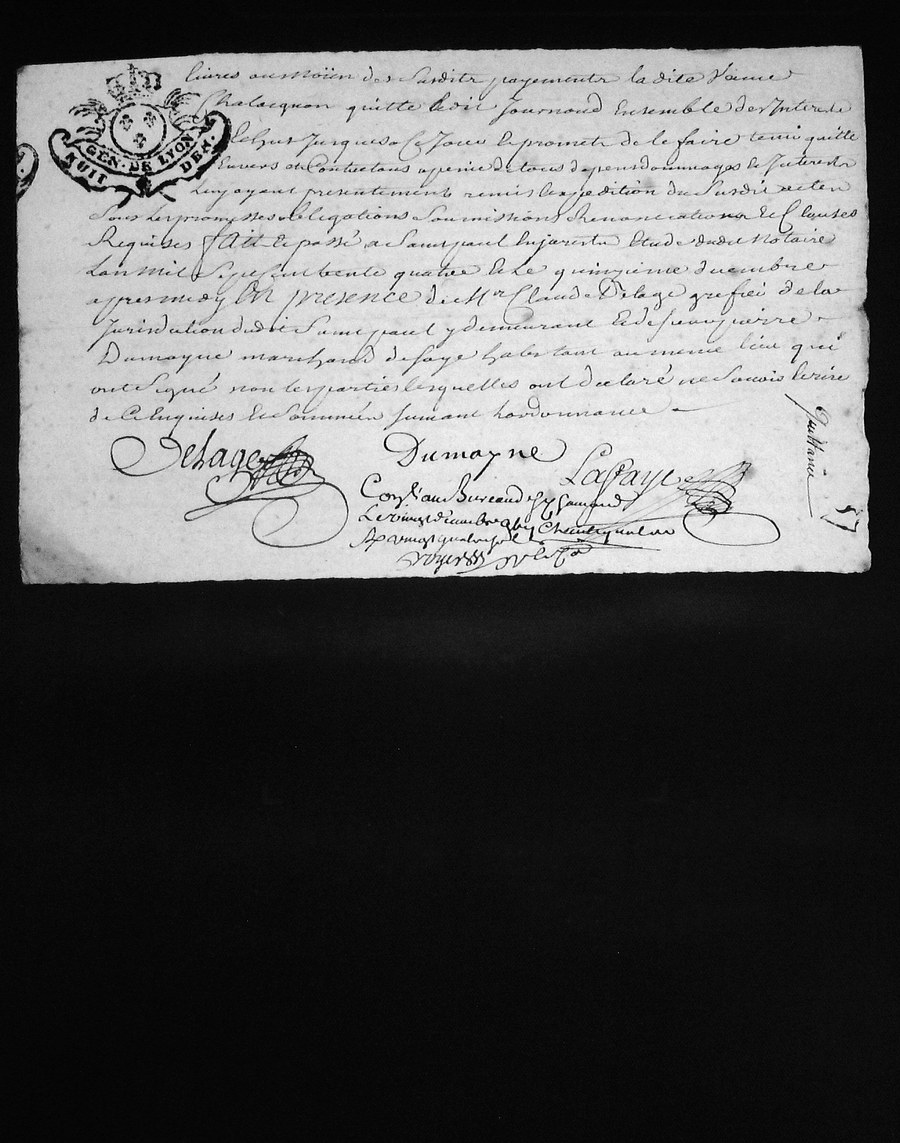 livres au moïen des susdits payements la dite veuve
Chalacquon quitte ledit Journoud Ensemble des Interets
Echus Jusques a Ce Jour Et promet de le faire tenir quitte
Envers et Contre tous a peine de tous depens dommages Et Interests
Luy ayant presentement remis lexpedition du Susdit acte
Sous Les promesses obligations Soumissions Renonciations Et Clauses
Requises fait Et passé a Saint paul En jarest Etude dudit Notaire
Lan mil Sept Cent trente quatre Et Le quinzieme decembre
apres midy En presence de Mr Claude Delage greffier de la
Jurisdiction dudit Saint paul y demeurant Et de Jean pierre
Dumayne marchand de soye habitant au meme lieu qui
ont Signé non les parties lesquelles ont declaré ne Scavoir Ecrire
de Ce Enquises Et Sommées Suivant lordonnance
GEN. DE LYON
HUIT DEN.
Delage
Dumayne
LaFaye
Con.lé au Bureau de St Chamond
Le vingt decembre
quittance
57